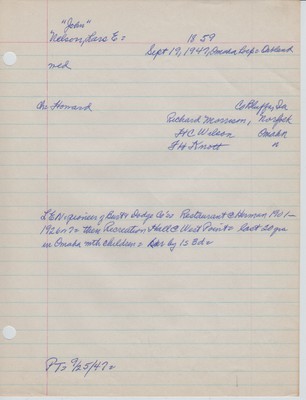 "John"
Nelson, Lars E = 1859
Sept 19, 1947, Omaha Hosp = Oakland
med
Ch: Howard Co Bluffs, Ia
Richard Morrison, Norfolk
H C Wilson Omaha
F H Knott "
L E N = pioneer of Burt & Dodge Co's = Restaurant @ Herman 1901-
1926 or 7 = then Recreation Hall @ West Point = last 20 yrs
in Omaha with children = by 1s Ed =
PT = 9/25/47 =